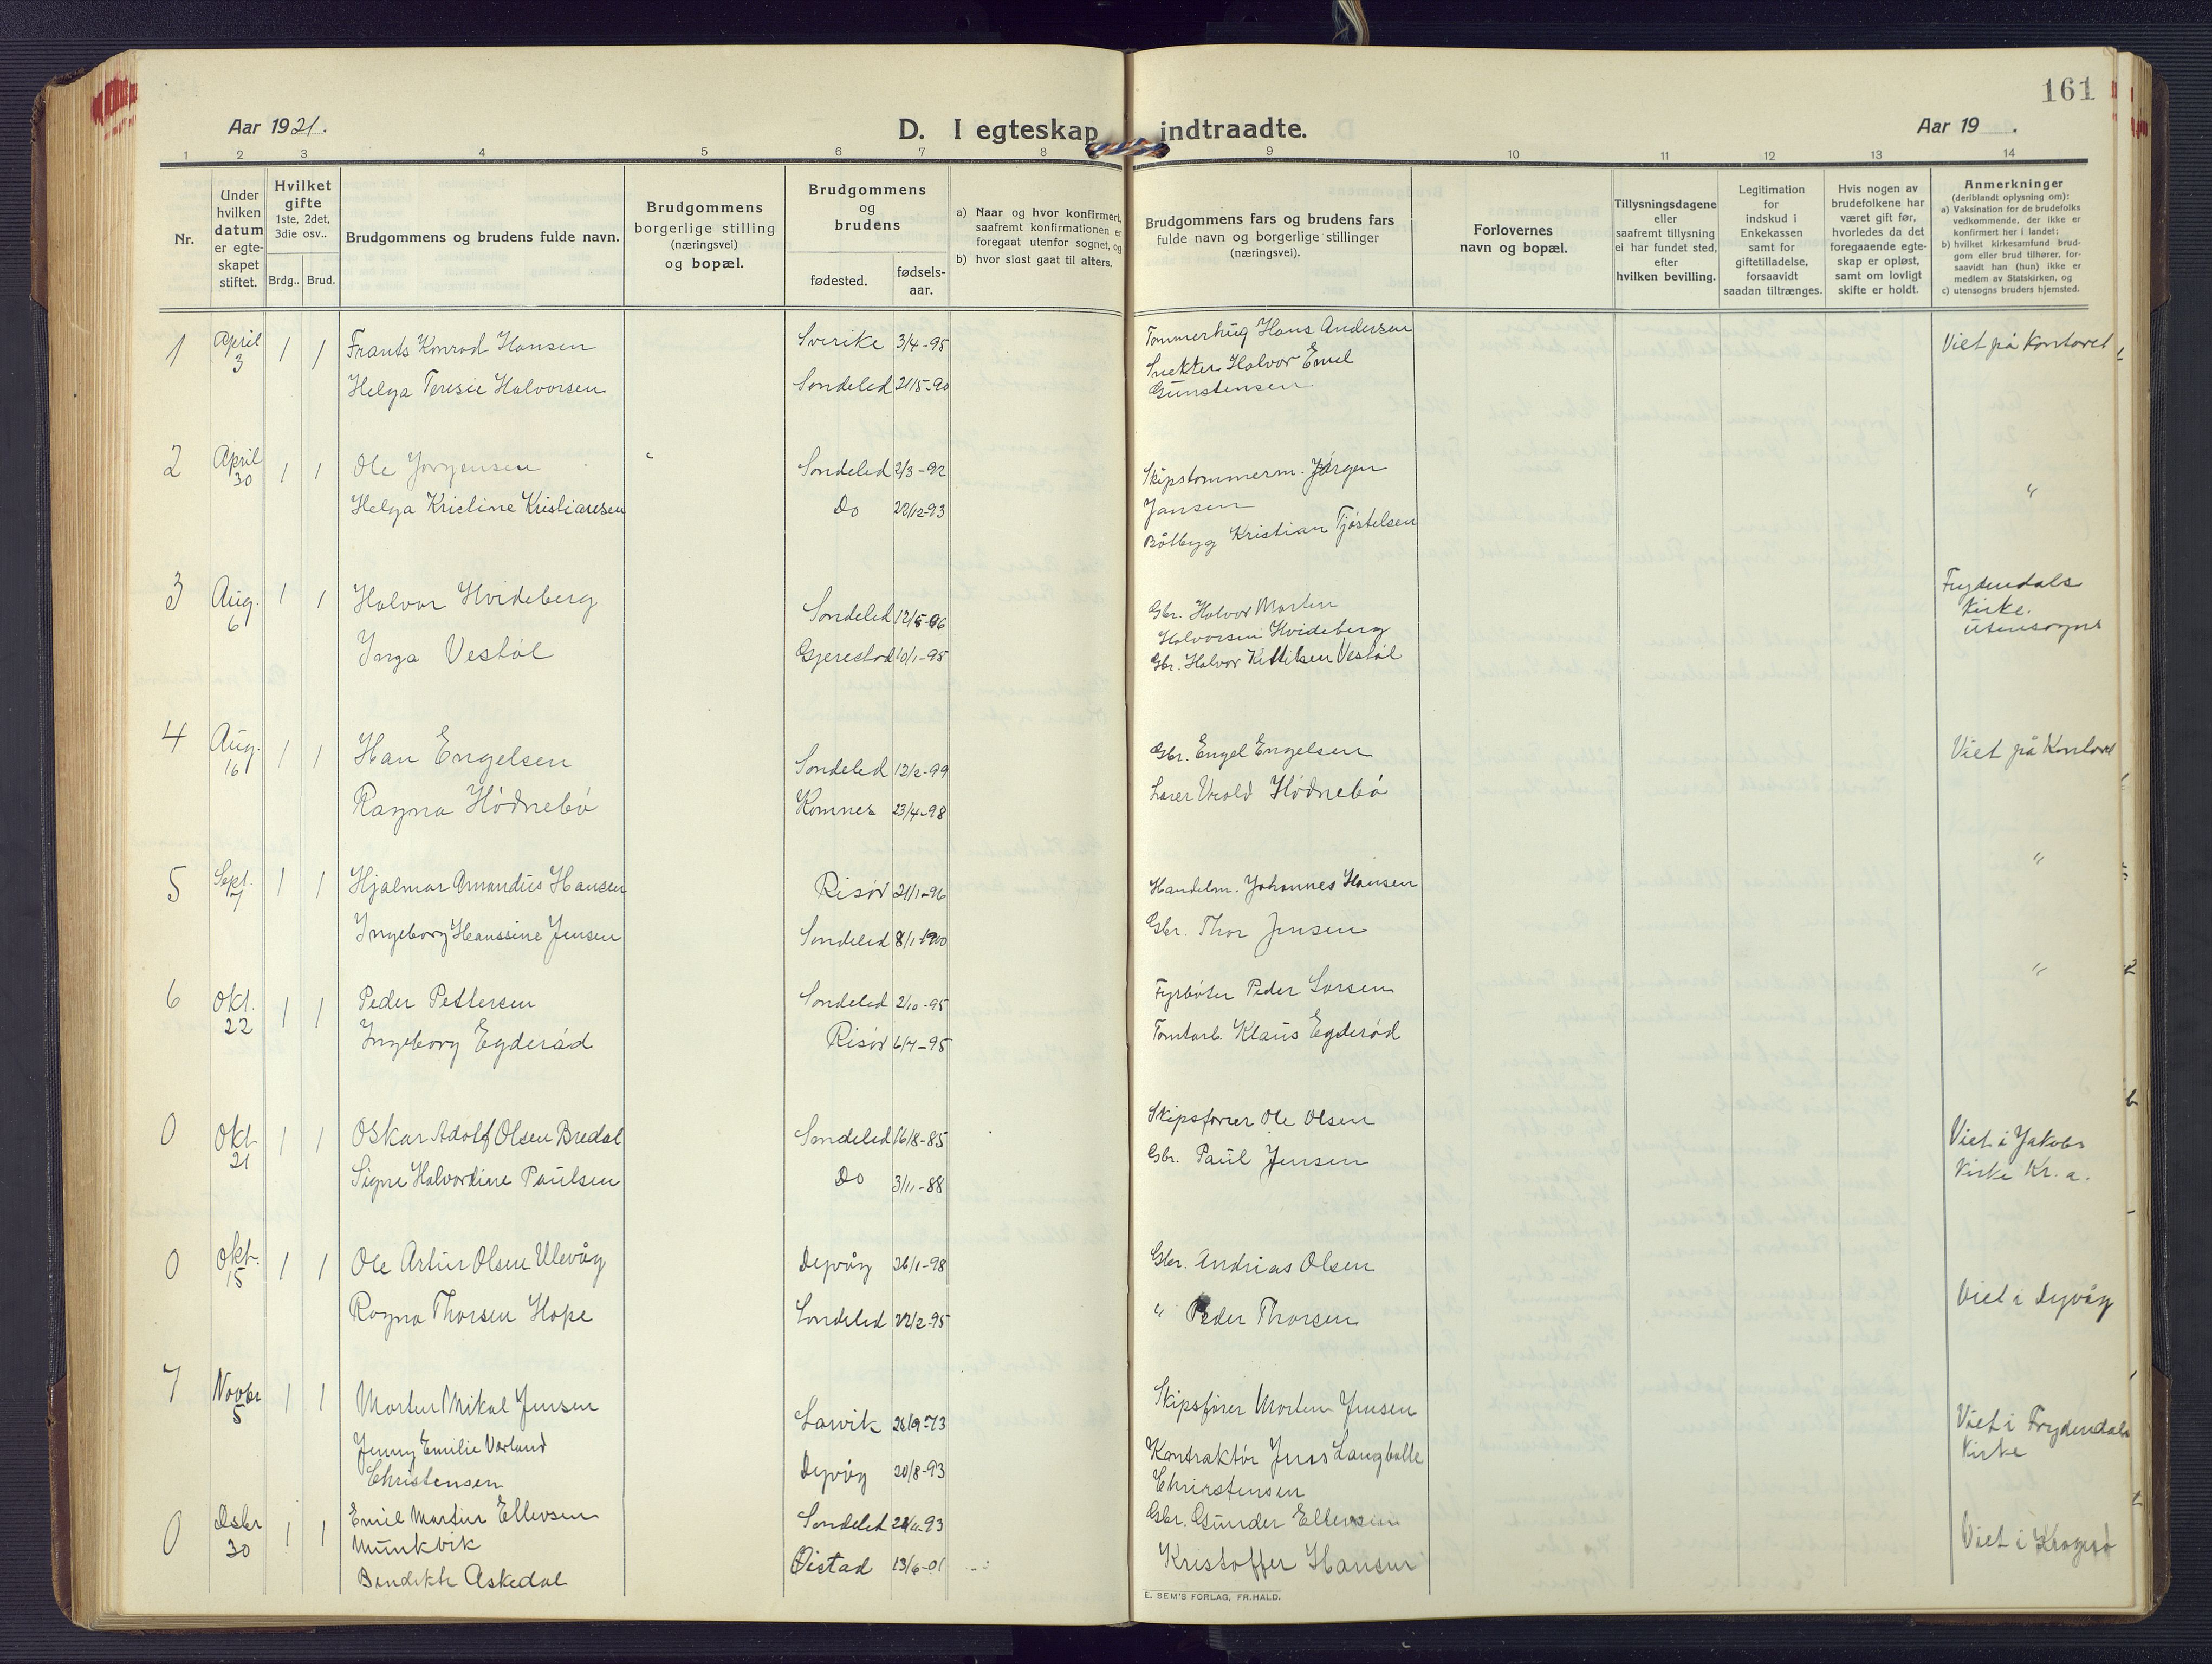 161
Aar 1921.
D. I egteskap indtraadte.
Aar 19 .
1 2 3 4 5 6 7 8 9 10 11 12 13 14
Nr.
Under hvilken datum er egte-skapet stiftet.
Hvilket gifte
1ste, 2det, 3die osv..
Brdg.. Brud.
Brudgommens og brudens fulde navn.
Brudgommens borgerlige stilling (næringsvei) og bopæl.
Brudgommens og brudens
fødested.
fødsels-aar.
a) Naar og hvor konfirmert, saafremt konfirmationen er foregaat utenfor sognet, og
b) hvor sidst gaat til alters.
Brudgommens fars og brudens fars fulde navn og borgerlige stillinger (næringsvei).
Forlovernes navn og bopæl.
Tillysningsdagene eller saafremt tillysning ei har fundet sted, efter hvilken bevilling.
Legitimation for indskud i Enkekassen samt for giftetilladelse, forsaavidt saadan tiltrænges.
Hvis nogen av brudefolkene har været gift før, hvorledes da det foregaaende egte-skap er opløst, samt om lovligt skifte er holdt.
Anmerkninger
(deriblandt oplysning om):
a) Vaksination for de brudefolks vedkommende, der ikke er konfirmert her i landet;
b) hvilket kirkesamfund brud-gom eller brud tilhører, for-saavidt han (hun) ikke er medlem av Statskirken, og
c) utensogns bruders hjemsted.
1 April 3 1 1 Frants Konrad Hansen Sverike 3/4-95 Tømmerhug Hans Andersen Viet på Kontoret
Helga Teresie Halvorsen Søndeled 21/5-90 Snekker Halvor Emil
Gunstensen
2 April 30 1 1 Ole Jørgensen Søndeled 2/3-92 Skipstømmerm. Jørgen
Jansen "
Helga Kristine Kristiansen Do 22/12-93 Kristian Tjøstelsen
3 Aug. 6 1 1 Halvor Hvideberg Søndeled Gbr. Halvor Martin
Halvorsen Hvideberg
Frydendals
Kirke.
utensogns
Inga Vestøl Gjerestad 10/1-95 Gbr. Halvor Kittilsen Vestøl
4 Aug. 16 1 1 Han Engelsen Søndeled 12/2-99 Gbr. Engel Engelsen Viet på Kontoret
Ragna Hødnebø 23/4-98 Lærer Hødnebø
5 Sept. 7 1 1 Hjalmar Amandus Hansen Risør 21/1-96 Handelsm. Johannes Hansen "
Ingeborg Hanssine Jensen Søndeled 8/1-1900 Gbr. Thor Jensen
6 Okt. 22 1 1 Peder Pettersen Søndeled 2/10-95 Fyrbøter Peder Larsen "
Ingeborg Egderød Risør 6/7-95 Tomtarb. Klaus Egderød
0 Okt 21 1 1 Oskar Adolf Olsen Bredal Søndeled 16/8-85 Skipsfører Ole Olsen
Signe Halvordine Paulsen Do 3/11-88 Gbr. Paul Jensen
Viet i Jakobs
Kirke Kr.a.
0 Okt. 15 1 1 Ole Artur Olsen Ulevåg Dypvåg 26/1-98 Gbr. Andrias Olsen
Ragna Thorsen Hope Søndeled 22/2-95 " Peder Thorsen Viet i Dypvåg
7 Novbr 5 1 1 Morten Mikal Jensen Larvik 26/9-73 Skipsfører Morten Jensen
Viet i Frydendals
Kirke
Jenny Emilie Værland
Christensen Dypvåg 20/8-93 Kontraktør Jens Langballe
Christensen
0 Dsbr 30 1 1 Emil Martin Ellevsen
Munkvik Søndeled Gbr. Gunder Ellevsen
Bendikte Askedal Øistad 13/6-01 Kristoffer Hansen Viet i Kragerø
E. SEM'S FORLAG, FR.HALD.